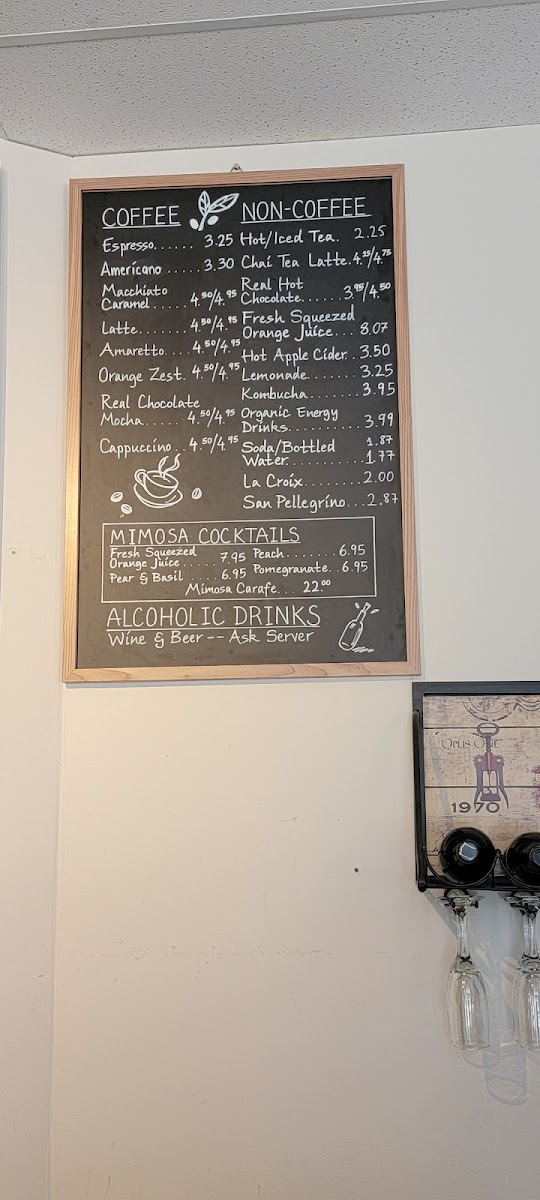 COFFEE
Espresso...... 3.25
Americano ..... 3.30
Macchiato
Caramel..... 4.50/4.95
Latte....... 4.50/4.95
Amaretto.... 4.50/4.95
Orange Zest. 4.50/4.95
Real Chocolate
Mocha...... 4.50/4.95
Cappuccino .. 4.50/4.95
NON-COFFEE
Hot/Iced Tea. 2.25
Chai Tea Latte.4.25/4.75
Real Hot
Chocolate...... 3.95/4.50
Fresh Squeezed
Orange Juice... 8.07
Hot Apple Cider.. 3.50
Lemonade....... 3.25
Kombucha....... 3.95
Organic Energy
Drinks......... 3.99
Soda/Bottled 1.87
Water.......... 1.77
La Croix........ 2.00
San Pellegrino...2.87
MIMOSA COCKTAILS
Fresh Squeezed
Orange Juice..... 7.95
Pear & Basil .... 6.95
Peach........ 6.95
Pomegranate.. 6.95
Mimosa Carafe... 22.00
ALCOHOLIC DRINKS
Wine & Beer -- Ask Server
Opus One
1970